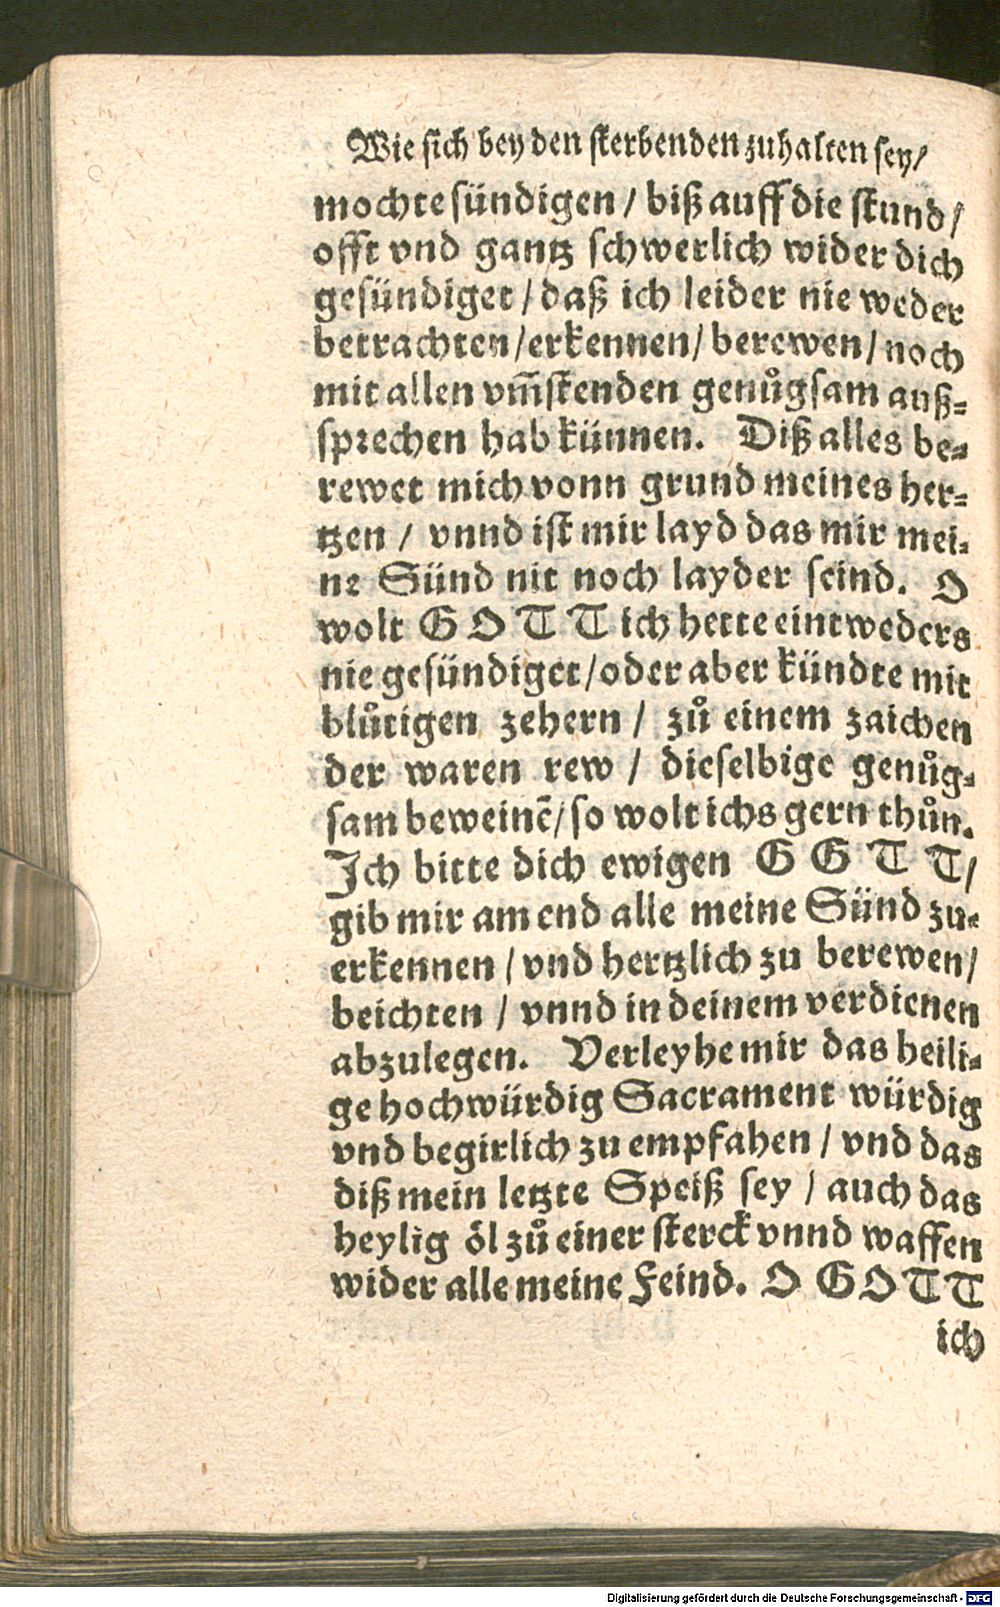 Wie sich bey den sterbenden zuhalten sey/
mochte sündigen / biß auff die stund /
offt vnd gantz schwerlich wider dich
gesündiget / daß ich leider nie weder
betrachten / erkennen / berewen / noch
mit allen vm̃stenden genůgsam auß⸗
sprechen hab künnen. Diß alles be⸗
rewet mich vonn grund meines her⸗
tzen / vnnd ist mir layd das mir mei⸗
ne Sünd nit noch layder seind. O
wolt GOTT ich hette eintweders
nie gesündiget / oder aber kündte mit
blůtigen zehern / zů einem zaichen
der waren rew / dieselbige genůg⸗
sam beweinẽ / so wolt ichs gern thůn.
Ich bitte dich ewigen GGTT /
gib mir am end alle meine Sünd zu⸗
erkennen / vnd hertzlich zu berewen /
beichten / vnnd in deinem verdienen
abzulegen. Verleyhe mir das heili⸗
ge hochwürdig Sacrament würdig
vnd begirlich zu empfahen / vnd das
diß mein letzte Speiß sey / auch das
heylig öl zů einer sterck vnnd waffen
wider alle meine Feind. O GOTT
ich
Digitalisierung gefördert durch die Deutsche Forschungsgemeinschaft - DFG